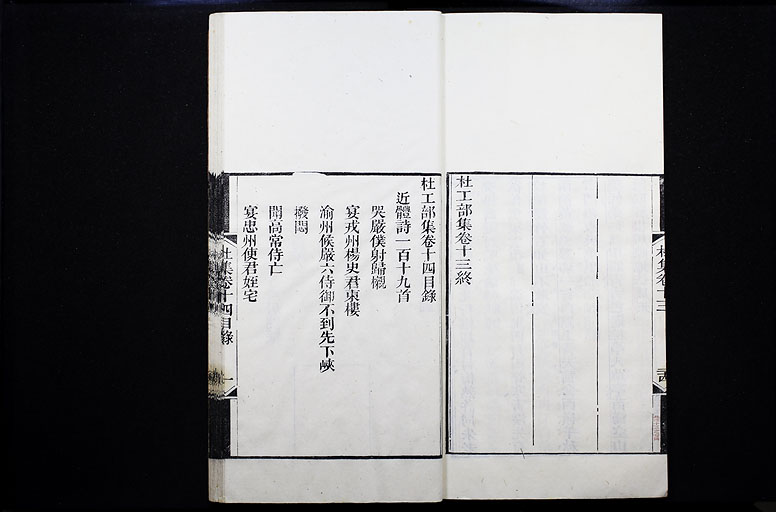 杜集卷十三
杜工部集卷十三終
杜工部集卷十四目錄
近體詩一百十九首
哭嚴僕射歸櫬
宴戎州楊史君東樓
渝州候嚴六侍御不到先下峽
撥悶
聞高常侍亡
宴忠州使君姪宅
杜集卷十四目錄
一